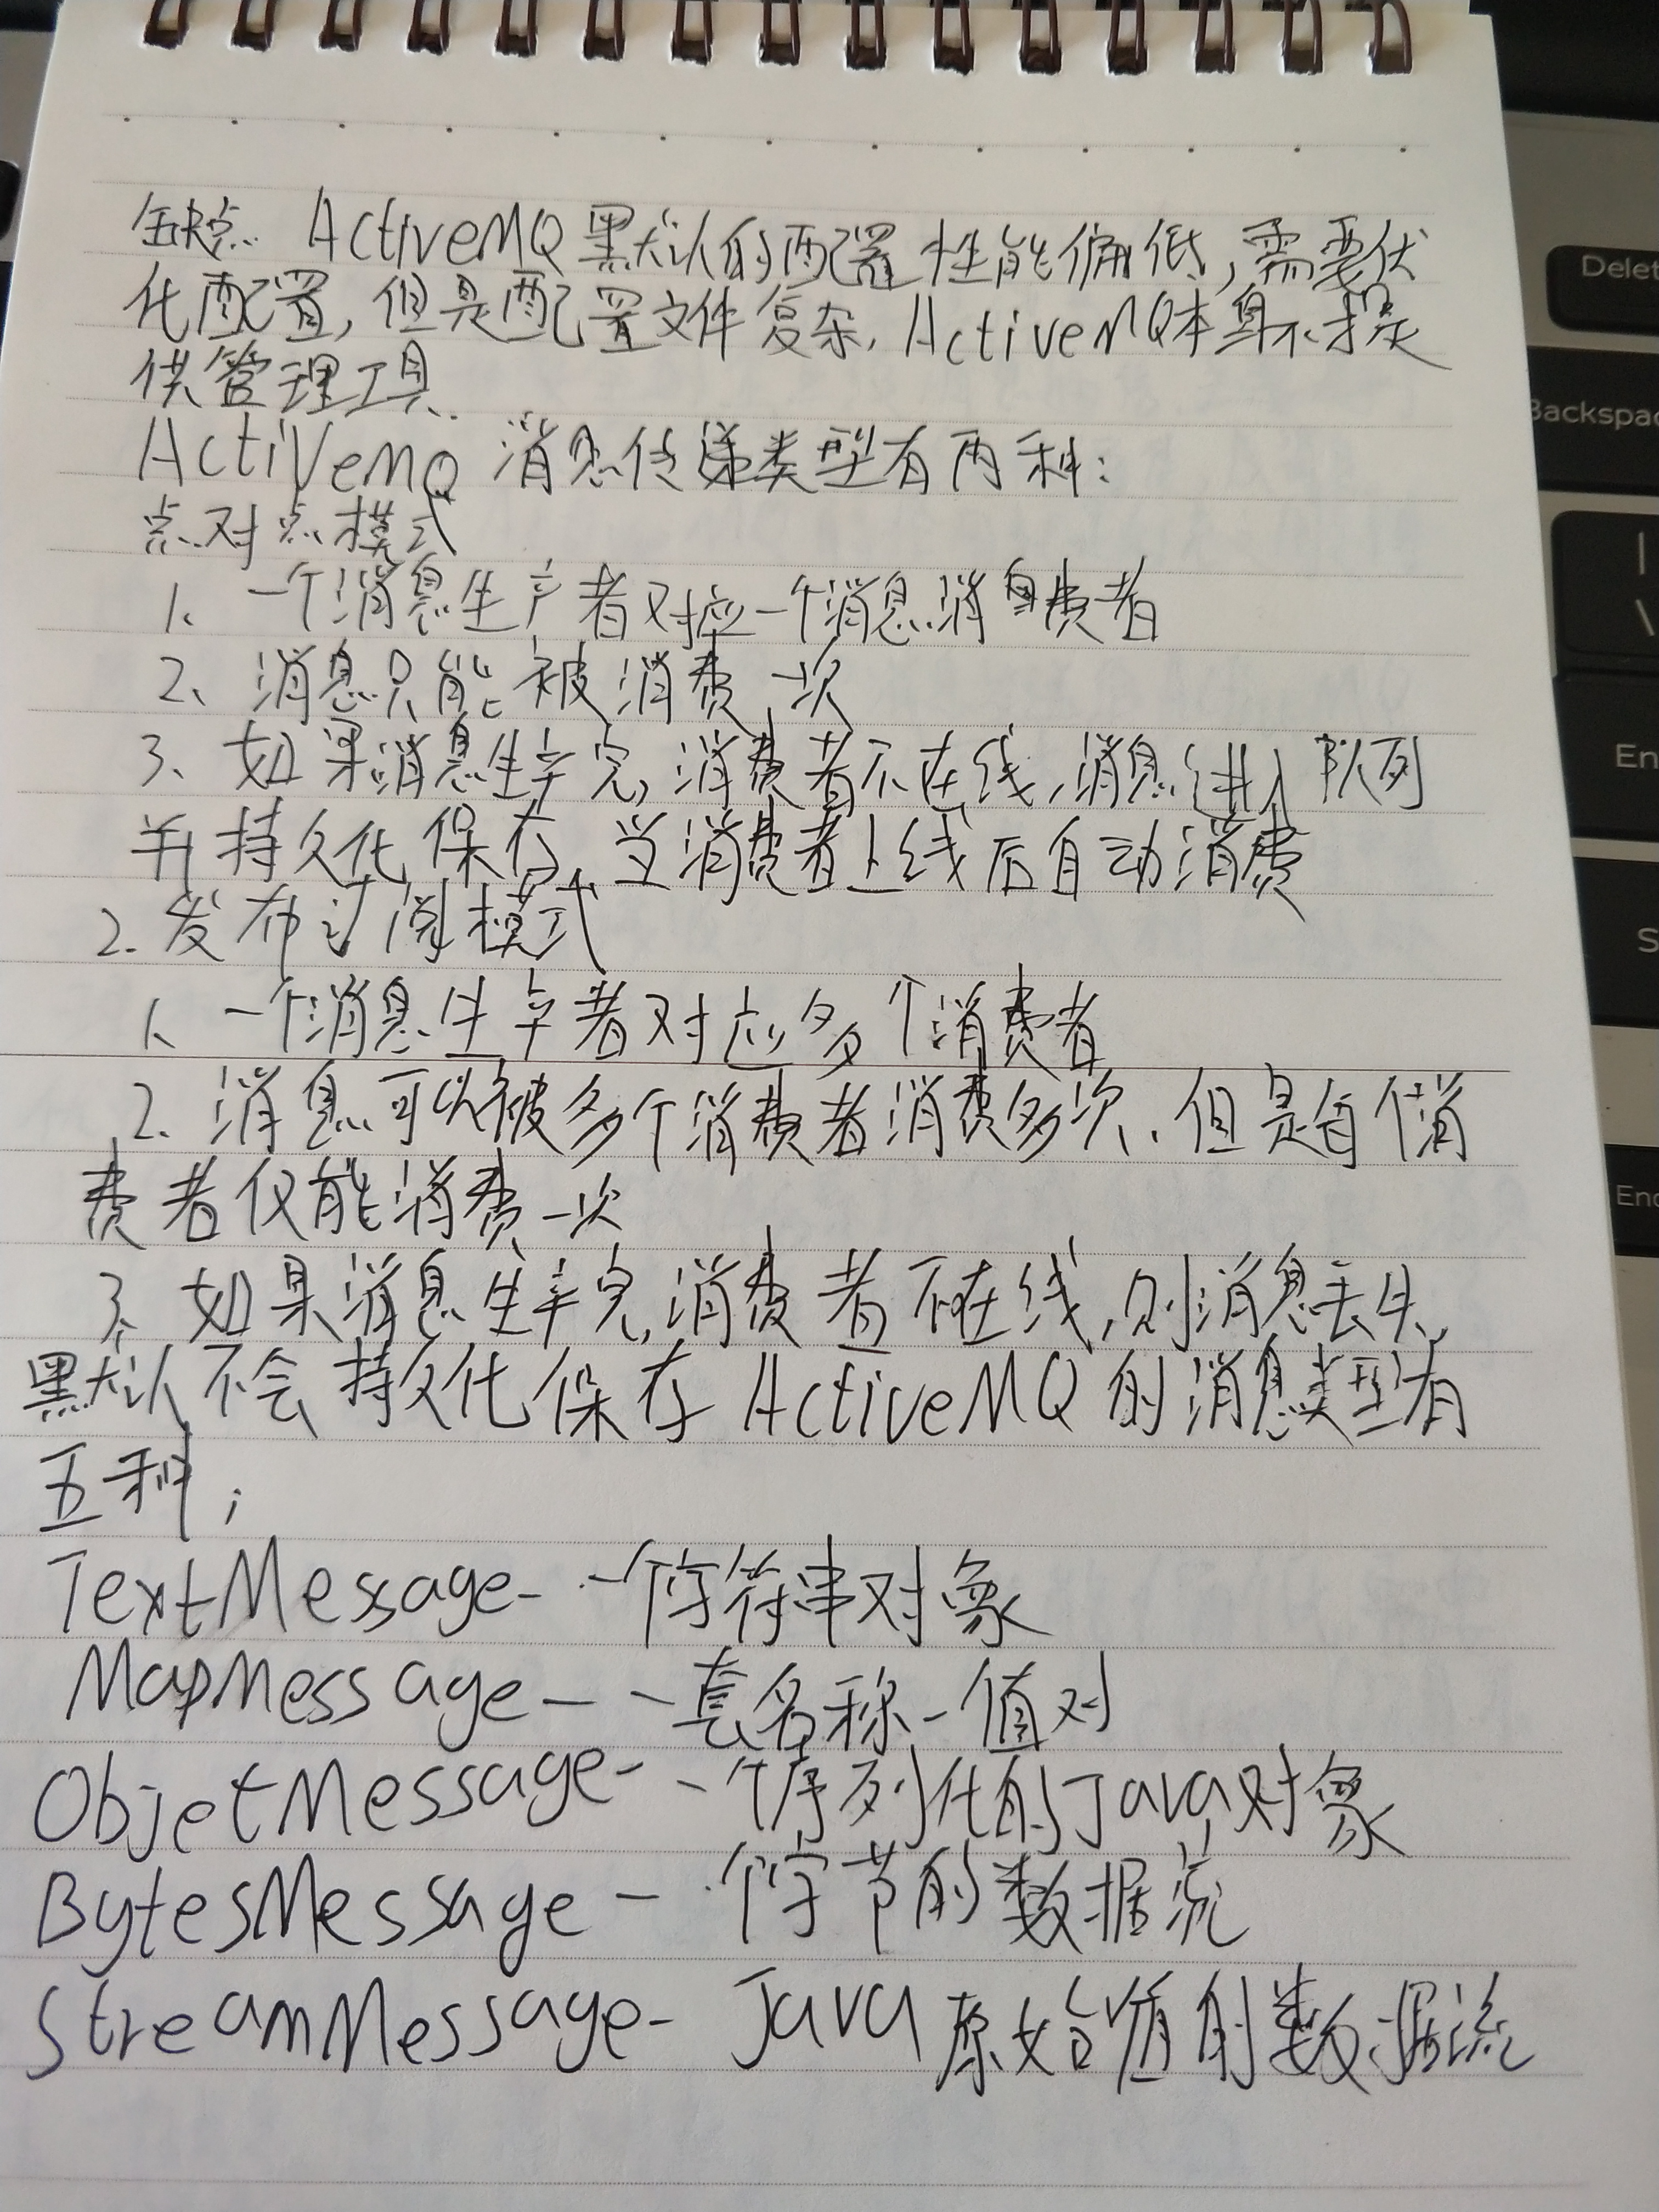 缺点. ActiveMQ默认的配置性能偏低,需要优
化配置,但是配置文件复杂,ActiveMQ本身不提
供管理工具.
ActiVeMQ 消息传递类型有两种:
点对点模式
1、一个消息生产者对应一个消息消费者
2、消息只能被消费一次
3、如果消息生产完,消费者不在线,消息进入队列
并持久化保存,当消费者上线后自动消费
2.发布订阅模式
1、一个消息生产者对应多个消费者
2、消息可以被多个消费者消费多次、但是每个消
费者仅能消费一次
3、如果消息生产完,消费者不在线,则消息丢失,
默认不会持久化保存 ActiveMQ的消息类型有
五种;
TextMessage--一个字符串对象
MapMessage--一套名称-值对
ObjetMessage--一个序列化的Java对象
BytesMessage-一个字节的数据流
StreamMessage-Java原始值的数据流
Delet
Backspac
|
\
En
S
End